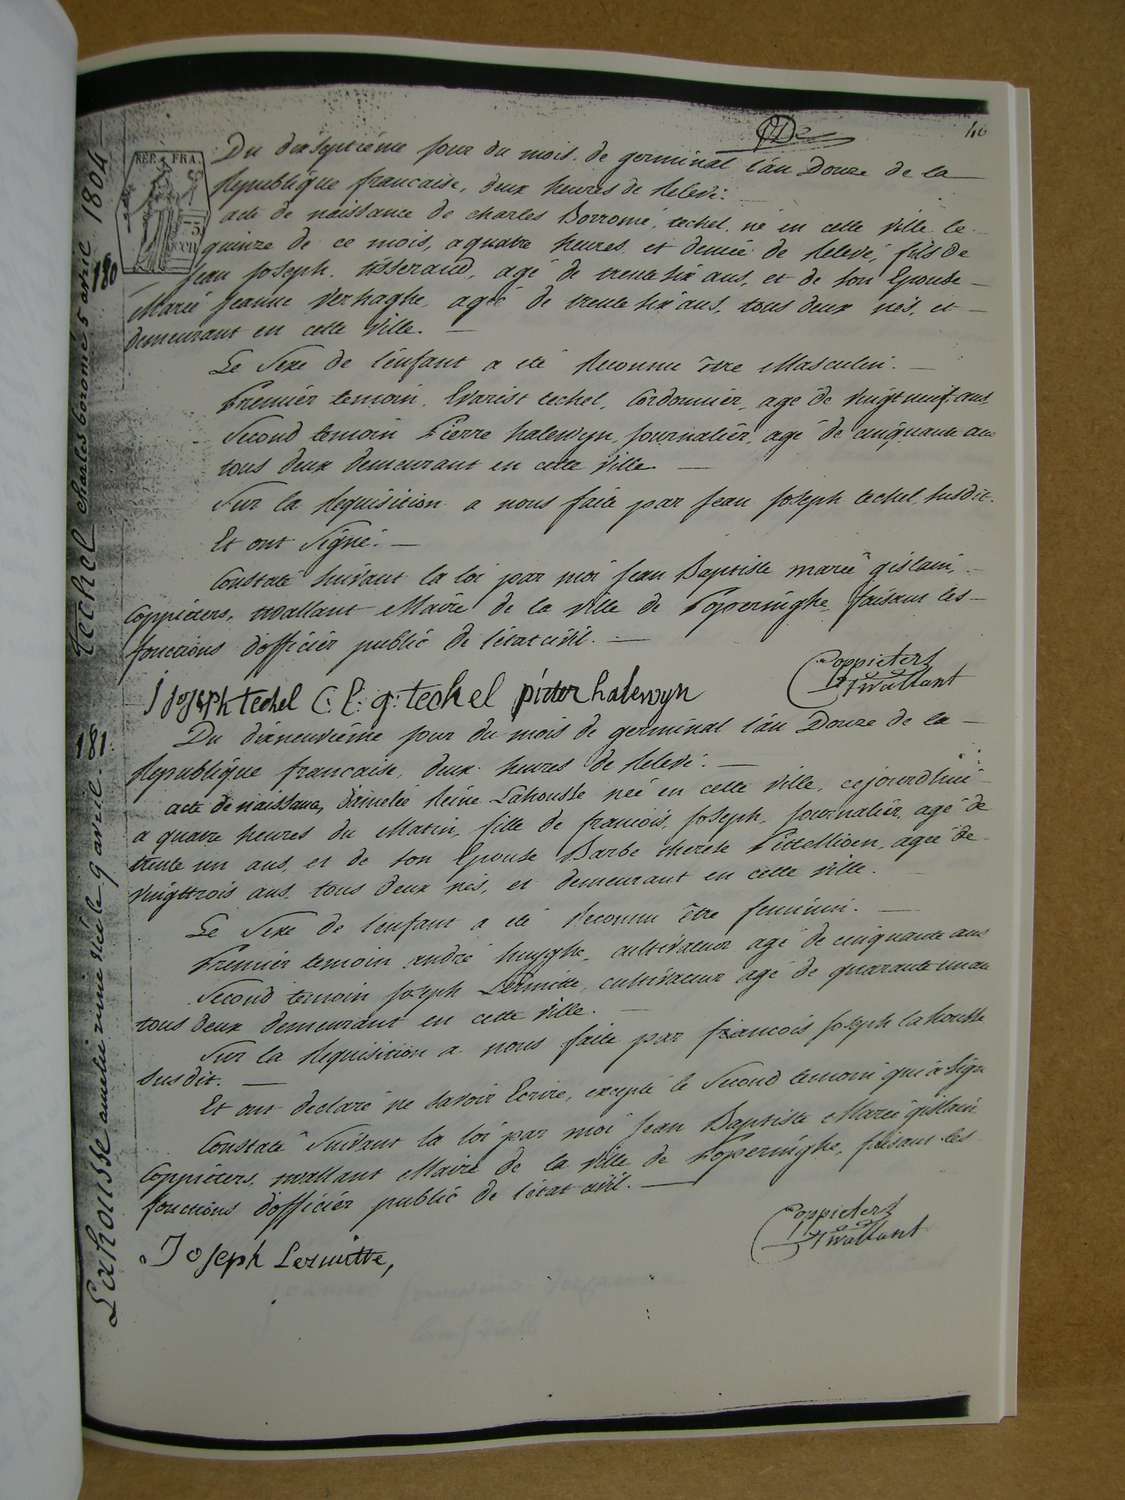 40
REP. FRA.
Du dixseptiéme jour du mois de germinal l'an Douze de la
Republique francaise, deux heures de Relevé.
acte de naissance de charles Borromé techel, né en cette ville le
quinze de ce mois, a quatre heures et demie de Relevé, fils de
jean joseph, tisserand, agé de trente six ans, et de son Epouse
Marie jeanne Verhaghe, agé de trente six ans, tous deux nés, et
demeurant en cette Ville.
Le Sexe de l'enfant a eté Reconnu être Masculin.
Premier temoin, Evarist techel, Cordonnier, agé de Vingt neuf ans
Second temoin Pierre halewyn, journalier, agé de cinquante ans
tous deux demeurant en cette Ville.
Sur la Requisition a nous faite par jean joseph techel susdit.
Et ont Signé.
Constaté Suivant la loi par moi jean Baptiste marie gislain,
Coppieters, twallant Maire de la Ville de Poperinghe, faisant les
fonctions d'officier public de l'état civil.
j joseph techel C: E: g: techel pieter halewyn
Coppieters
twallant
180
techel charles borromé 5 avril 1804
Du dixneuviéme jour du mois de germinal l'an Douze de la
Republique francaise, deux heures de Relevé.
acte de naissance, d'amelie Reine Lahousse née en cette Ville, cejourd'hui
a quatre heures du Matin, fille de francois joseph, journalier, agé de
trente un ans, et de son Epouse Barbe therese Pittellioen, agée de
Vingttrois ans, tous deux nés, et demeurant en cette ville.
Le Sexe de l'enfant a eté Reconnu être feminin.
Premier temoin andré huyghe, cultivateur agé de cinquante ans
Second temoin joseph Lermitte, cultivateur agé de quarante un an
tous deux demeurant en cette ville.
Sur la Requisition a nous faite par francois joseph lahousse
susdit.
Et ont declaré ne savoir Ecrire, excepté le Second temoin qui a Signé
Constaté Suivant la loi par moi jean Baptiste Marie gislain
Coppieters, twallant Maire de la Ville de Poperinghe, faisant les
fonctions d'officier public de l'état civil.
Joseph Lermitte,
Coppieters
twallant
181.
Lahousse amelie reine née le 9 avril.